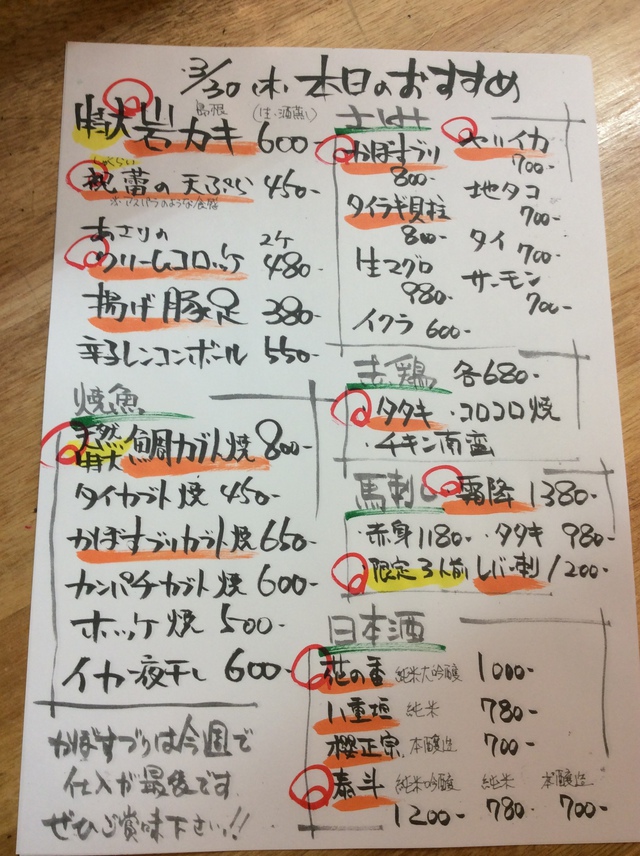 3/30(木)本日のおすすめ
島根 (生・酒蒸し)
特大岩カキ 600-
祝蕾の天ぷら 450-
※アスパラのような食感
あさりの
クリームコロッケ 2ケ 480-
揚げ豚足 380-
辛子レンコンボール 550-
焼魚
天然特大鯛カブト焼 800-
タイカブト焼 450-
かぼすブリカブト焼 650-
カンパチカブト焼 600-
ホッケ焼 500-
イカ一夜干し 600-
かぼすブリは今週で
仕入が最後です
ぜひご賞味下さい!!
かぼすブリ 800-
タイラギ貝柱 800-
生マグロ 980-
イクラ 600-
ヤリイカ 700-
地タコ 700-
タイ 700-
サーモン 700-
鶏 各680-
タタキ ・コロコロ焼
・チキン南蛮
馬刺し 霜降 1380-
・赤身 1180- ・タタキ 980-
・限定3人前 レバー刺 1200-
日本酒
花の香 純米大吟醸 1000-
八重垣 純米 780-
櫻正宗 本醸造 700-
泰斗 純米吟醸 純米 本醸造
1200- 780- 700-